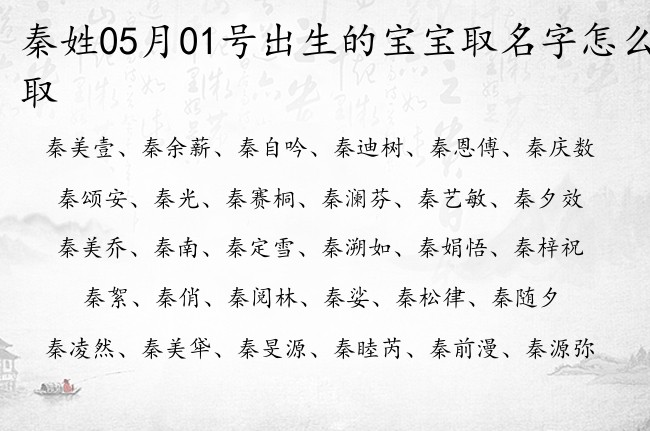 秦姓05月01号出生的宝宝取名字怎么
取
秦美壹、秦余薪、秦自吟、秦迪树、秦恩傅、秦庆数
秦颂安、秦光、秦赛桐、秦澜芬、秦艺敏、秦夕效
秦美乔、秦南、秦定雪、秦溯如、秦娟悟、秦梓祝
秦絮、秦俏、秦阅林、秦娑、秦松律、秦随夕
秦凌然、秦美华、秦旻源、秦睦芮、秦前漫、秦源弥